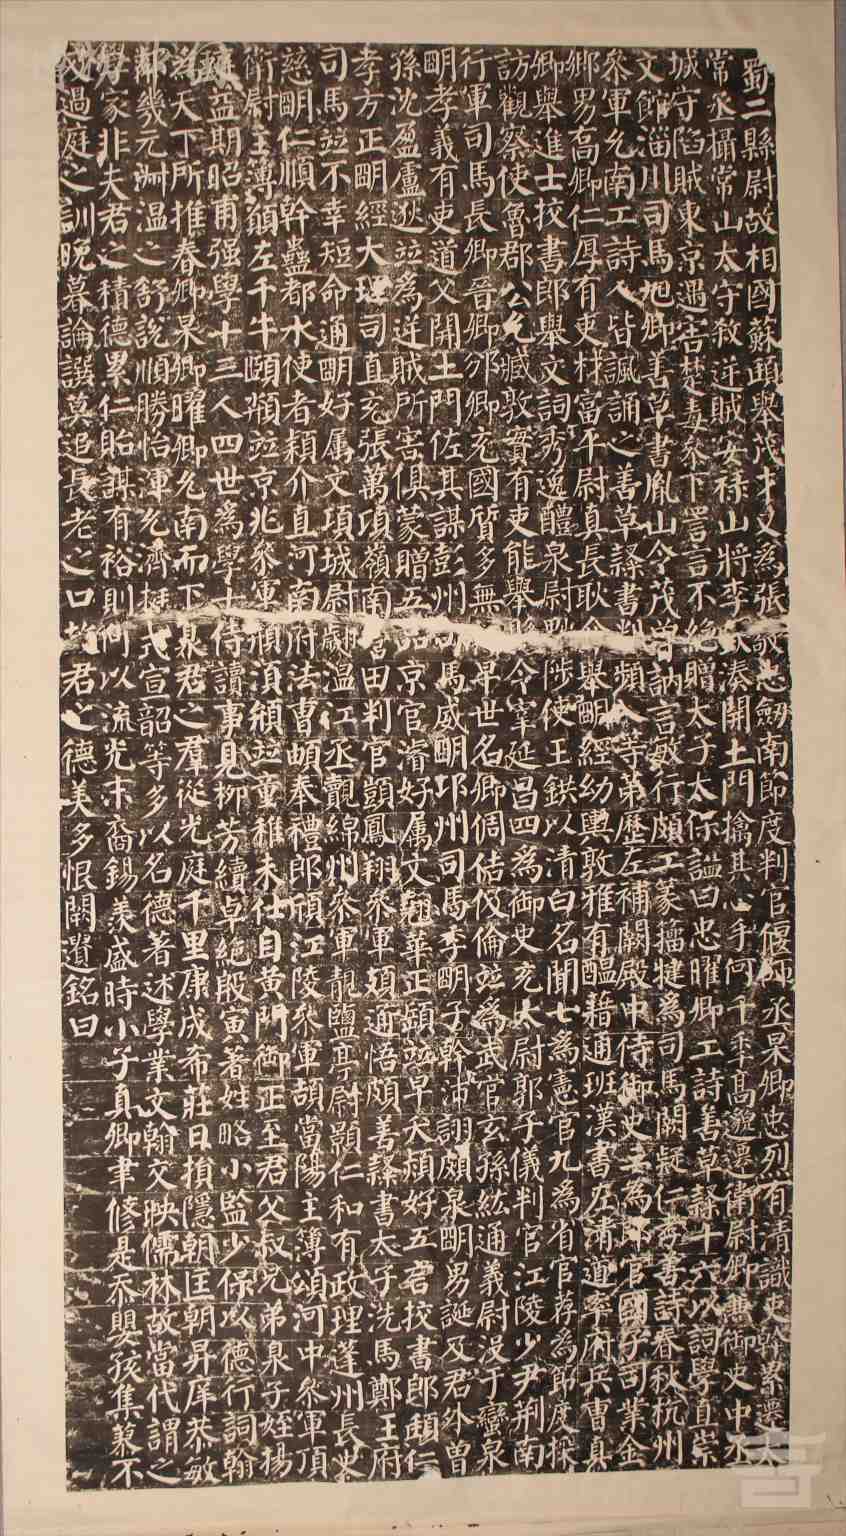 蜀二縣尉故相國蘇頲舉茂才又為張敬忠劒南節度判官偃師丞杲卿忠烈有清識吏幹累遷太
常丞攝常山太守殺逆賊安祿山將李欽湊開土門擒其心手何千年高邈遷衛尉卿兼御史中丞
城守陷賊東京遇害楚毒參下詈言不絕贈太子太保謚曰忠曜卿工詩善草隸十六以詞學直崇
文館淄川司馬旭卿善草書胤山令茂曾訥言敏行頗工篆籀犍為司馬闕疑仁孝善詩春秋杭州
參軍允南工詩人皆諷誦之善草隸書判頻入等第歷左補闕殿中侍御史三為郎官國子司業金
鄉男喬卿仁厚有吏材富平尉真長耿介舉朙經幼輿敦雅有醞藉通班漢書左清道率府兵曹真
卿舉進士挍書郎舉文詞秀逸醴泉尉黜陟使王鉷以清白名聞七為憲官九為省官荐為節度採
訪觀察使魯郡公允臧敦實有吏能舉縣令宰延昌四為御史充太尉郭子儀判官江陵少尹荊南
行軍司馬長卿晉卿邠卿充國質多無祿早世名卿倜佶伋倫並為武官玄孫紘通義尉沒于蠻泉
朙孝義有吏道父開土門佐其謀彭州司馬威朙邛州司馬季朙子幹沛詡頗泉朙男誕及君外曾
孫沈盈盧逖並為逆賊所害俱蒙贈五品京官濬好属文翹華正頵並早夭熲好五言挍書郎頲仁
孝方正朙經大理司直充張萬頃嶺南營田判官顗鳳翔參軍頍通悟頗善隸書太子洗馬鄭王府
司馬並不幸短命通朙好属文項城尉翽溫江丞覿綿州參軍靚鹽亭尉顥仁和有政理蓬州長史
慈朙仁順幹蠱都水使者穎介直河南府法曹頔奉禮郎頎江陵參軍頡當陽主簿頌河中參軍頂
衛尉主簿願左千牛頤頖並京兆參軍須頩並童稚未仕自黃門御正至君父叔兄弟息子姪揚
庭益期昭甫强學十三人四世為學士侍讀事見柳芳續卓絕殷寅著姓略小監少保以德行詞翰
為天下所推春卿杲卿曜卿允南而下息君之群從光庭千里康成希莊日損隱朝匡朝昇庠恭敏
鄰幾元淑溫之舒說順勝怡渾允濟挺式宣韶等多以名德著述學業文翰交映儒林故當代謂之
學家非夫君之積德累仁貽謀有裕則何以流光末裔錫羨盛時小子真卿聿修是忝嬰孩集蓼不
及過庭之訓晚暮論譔莫追長老之口故君之德美多恨闕遺銘曰